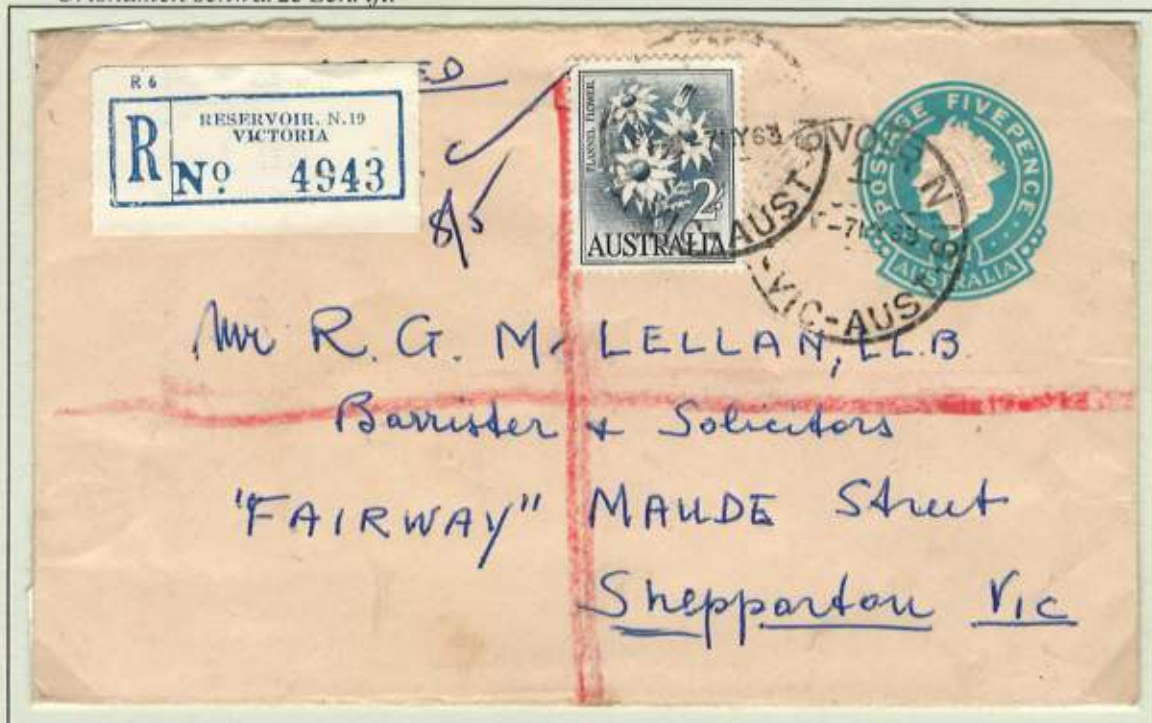 R 6
R
RESERVOIR. N.19
VICTORIA
No 4943
8/5
FLANNEL FLOWER
2/-
AUSTRALIA
POSTAGE FIVEPENCE
AUSTRALIA
7MY63
AUST
-7MY63
VIC-AUST
Mr R. G. Mc LELLAN, LL.B.
Barrister + Solicitors
"FAIRWAY" MAUDE Street
Shepparton Vic